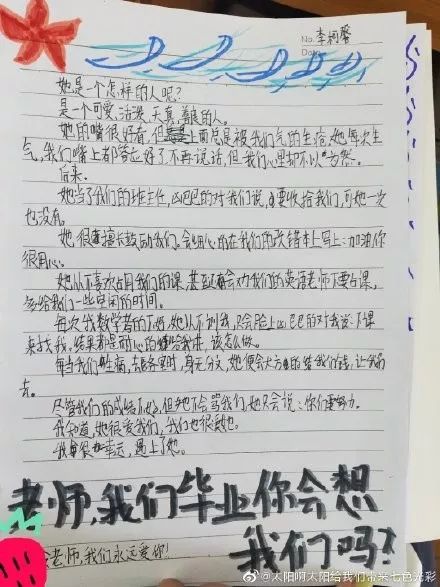 No. 李柯馨
Date
她是一个怎样的人呢?
是一个可爱、活泼、天真、善良的人。
她的嘴很好看,但上面总是被我们气的生疮,她每次生
气,我们嘴上都答应好了不再说话,但我们心里却不以为然。
后来,
她当了我们的班主任,凶巴巴的对我们说,要收拾我们,可她一次
也没有。
她很擅长鼓励我们。会细心的在我们的改错本上写上:加油你
很用心。
她从不喜欢占用我们的课,甚至还会劝我们的英语老师不要占课,
多给我们一些空闲的时间。
每次我数学考的不好,她从不训我,只会脸上凶巴巴的对我说:下课
来找我,结果都是耐心的给我讲,该怎么做。
每当我们生病,去医务室时,身无分文,她便会大方的给我们钱,让我们
去。
尽管我们的成绩不好,但她不会骂我们,她只会说:你们要努力。
我知道,她很爱我们,我们也很爱她。
我很幸运,遇上了她。
老师,我们毕业你会想
我们吗?
老师,我们永远爱你!
@太阳啊太阳给我们带来七色光彩